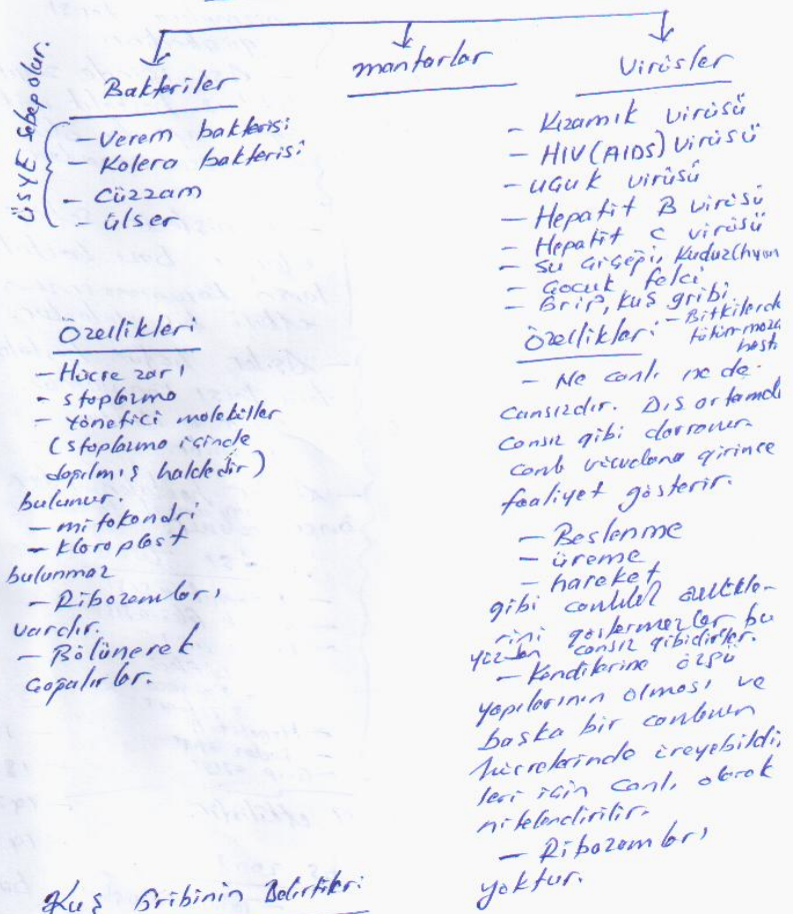 Bakteriler
mantarlar
Virüsler
ÜSYE sebep olur.
- Verem bakterisi
- Kolera bakterisi
- Cüzzam
- ülser
Özellikleri
- Hücre zarı
- stoplazma
- Yönetici moleküller
(stoplazma içinde
dağılmış haldedir)
bulunur.
- mitokondri
- kloroplast
bulunmaz
- Ribozomları
vardır.
- Bölünerek
Çoğalırlar.
- Kızamık virüsü
- HIV (AIDS) virüsü
- uçuk virüsü
- Hepatit B virüsü
- Hepatit C virüsü
- Su çiçeği, Kuduz
- Çocuk felci
- Grip, kuş gribi
- Bitkilerde
tütün moza
hast
Özellikleri
- Ne canlı ne de
cansızdır. Dış ortamda
cansız gibi davranır.
canlı vücuduna girince
faaliyet gösterir.
- Beslenme
- üreme
- hareket
gibi canlılık özellikle-
rini göstermezler bu
yüzden cansız gibidirler.
- Kendilerine özgü
yapılarının olması ve
başka bir canlının
hücrelerinde üreyebildi
leri için canlı olarak
nitelendirilir.
- Ribozomları
yoktur.
Kuş Gribinin Belirtileri